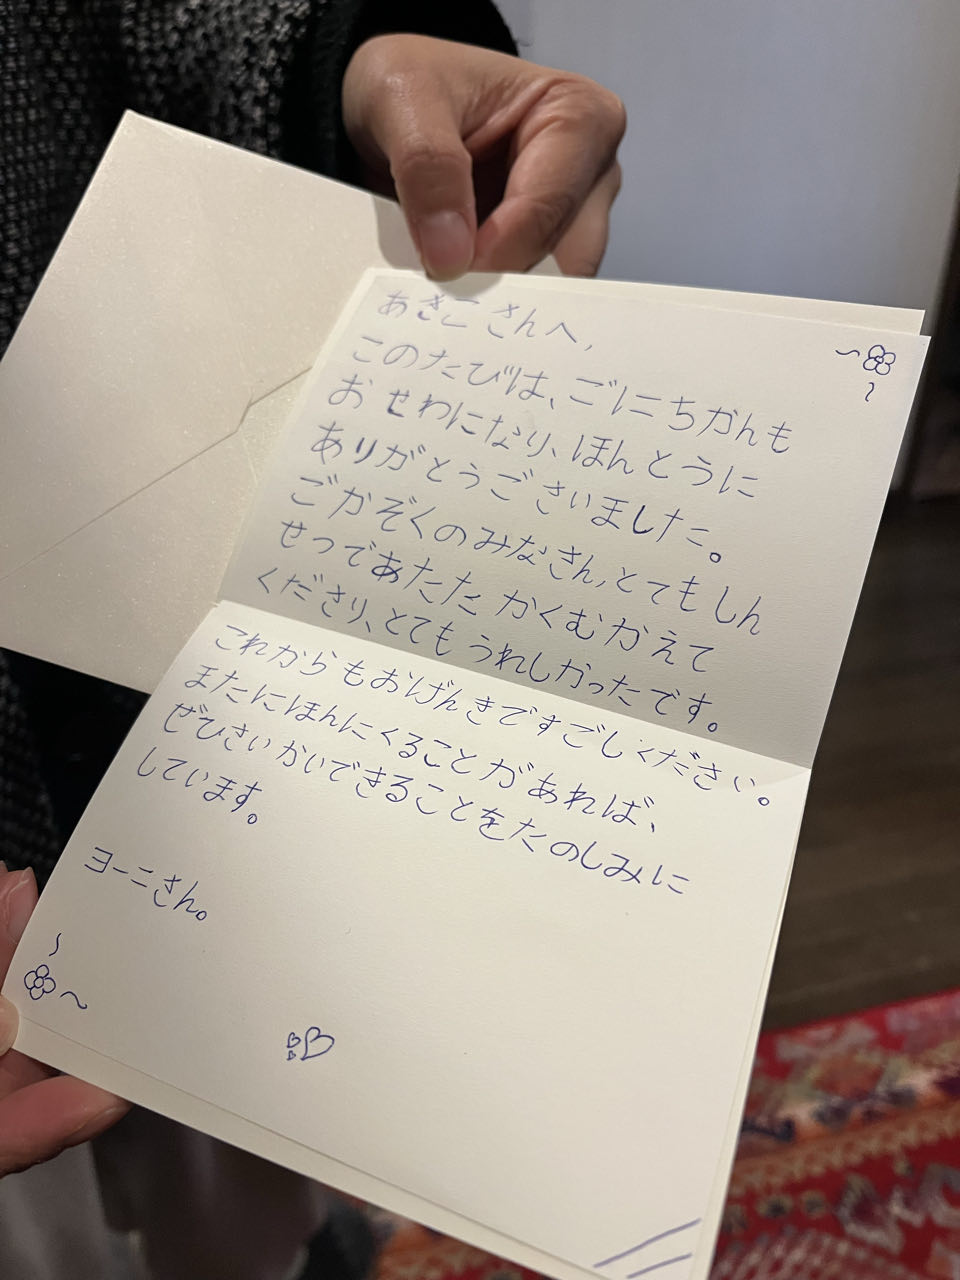 あきこさんへ,
このたびは、ごにちかんも
おせわになり、ほんとうに
ありがとうございました。
ごかぞくのみなさん,とてもしん
せつであたたかくむかえて
くださり、とてもうれしかったです。
これからもおげんきですごしください。
またにほんにくることがあれば、
ぜひさいかいできることをたのしみに
しています。
ヨーニさん。